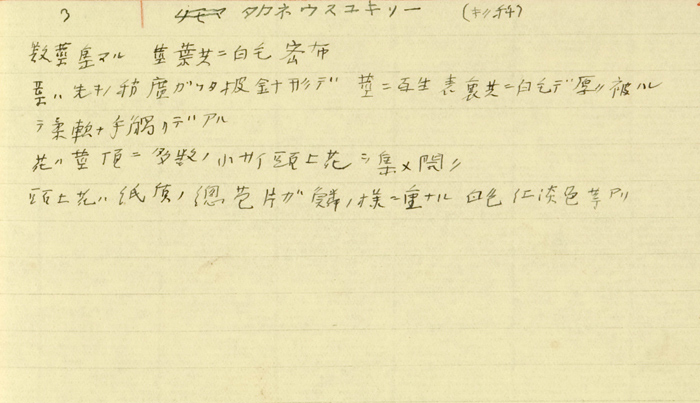 3 タカネウスユキソー (キク科)
数莖集マル 莖葉共ニ白毛密布
葉ハ先キノ稍廣ガツタ披針形デ 莖ニ互生 表裏共ニ白毛デ厚ク被ハル
柔軟ナ手觸リデアル
花ハ莖頂ニ多数ノ小サイ頭上花ヲ集メ開ク
頭上花ハ紙質ノ總苞片ガ鱗ノ様ニ重ナル 白色 仁淡色等アリ